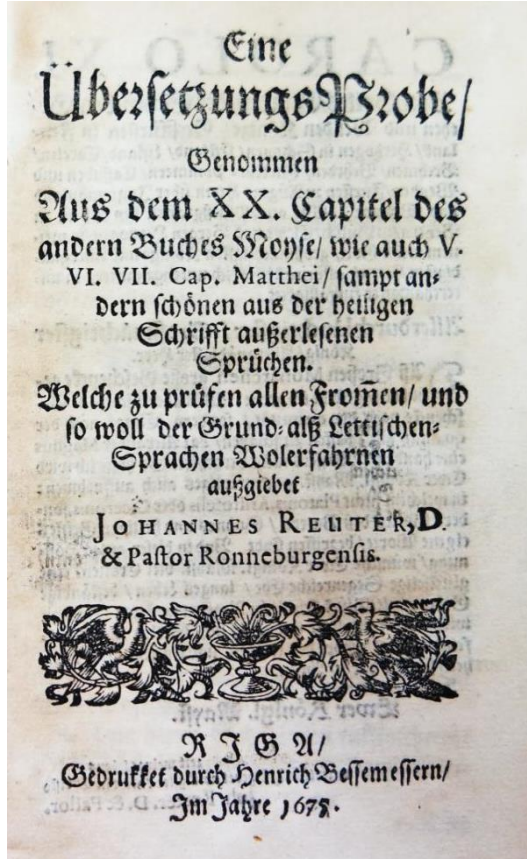 Eine
ÜbersetzungsProbe/
Genommen
Aus dem XX. Capitel des
andern Buches Moyse/ wie auch V.
VI. VII. Cap. Matthei/ sampt an-
dern schönen aus der heiligen
Schrifft außerlesenen
Sprüchen.
Welche zu prüfen allen From̃en/ und
so woll der Grund- alß Lettischen-
Sprachen Wolerfahrnen
außgiebet
JOHANNES REUTER, D.
& Pastor Ronneburgensis.
RIGA/
Gedrukket durch Henrich Bessemessern/
Im Jahre 1675.